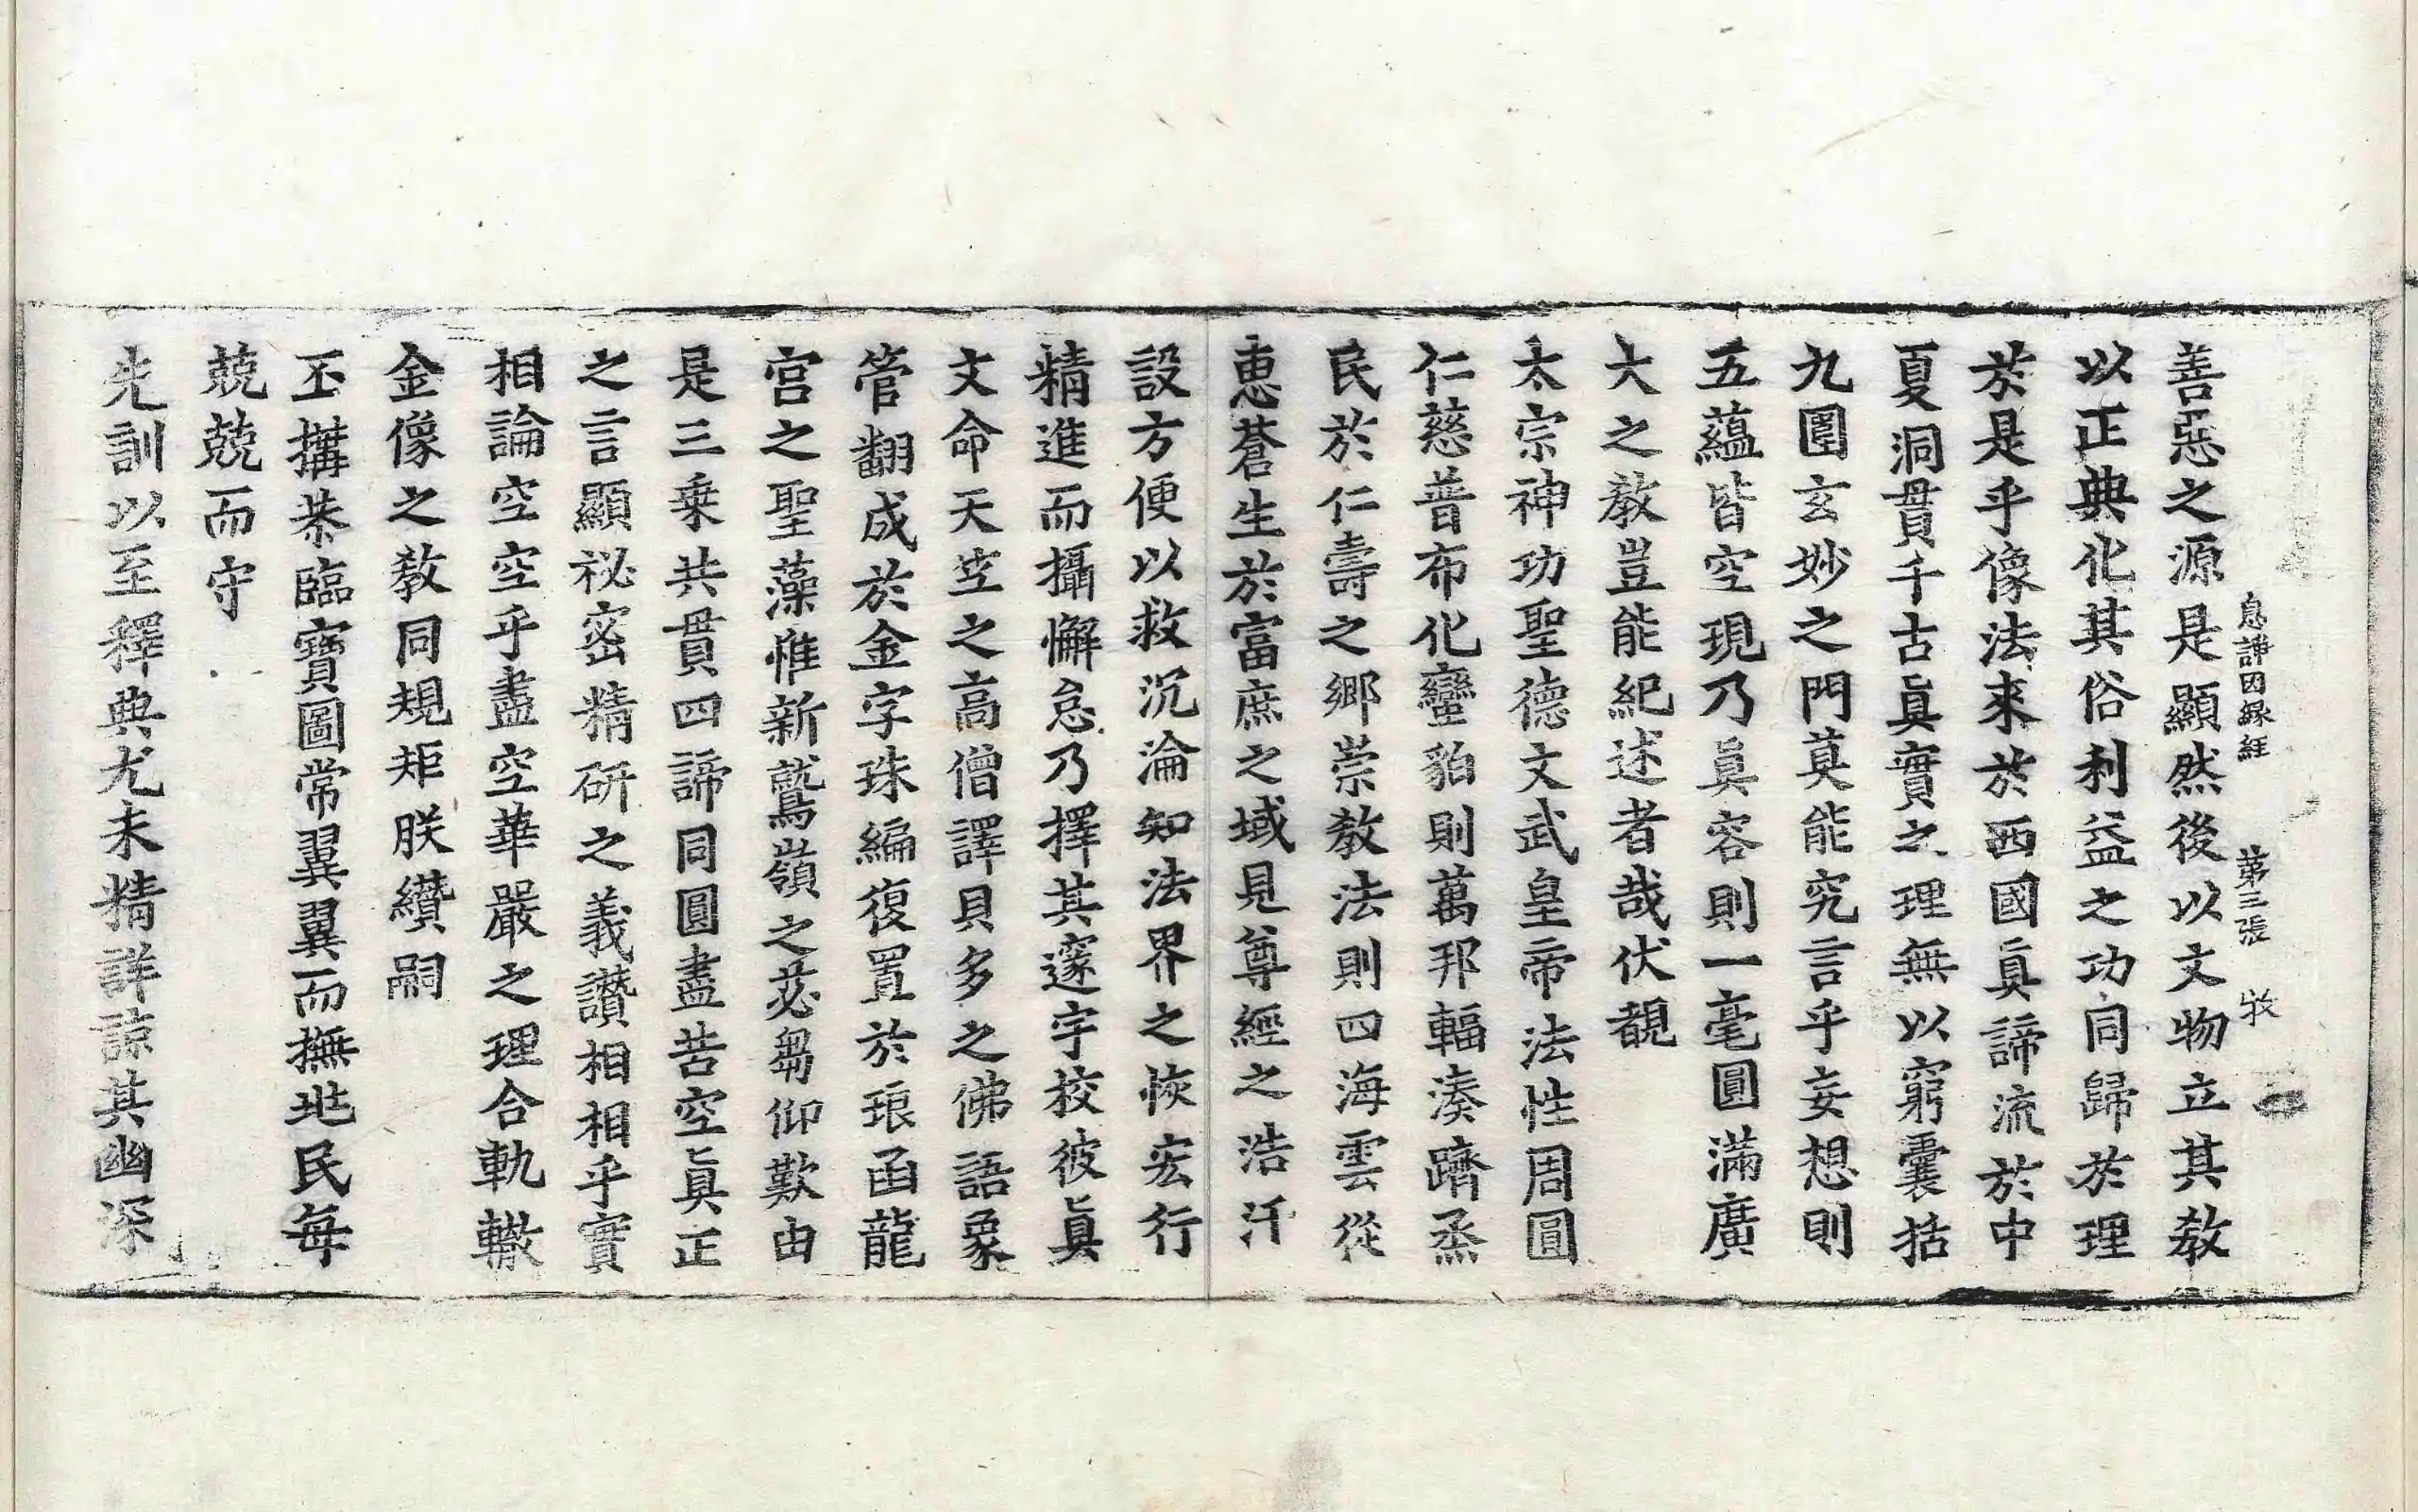 息諍因緣經 第三張 牧
善惡之源是顯然後以文物立其教
以正典化其俗利益之功同歸於理
於是乎像法來於西國真諦流於中
夏洞貫千古真實之理無以窮囊括
九圍玄妙之門莫能究言乎妄想則
五蘊皆空現乃真容則一毫圓滿廣
大之教豈能紀述者哉伏覩
太宗神功聖德文武皇帝法性周圓
仁慈普布化蠻貊則萬邦輻湊躋烝
民於仁壽之鄉崇教法則四海雲從
恵蒼生於富庶之域見尊經之浩汗
設方便以救沉淪知法界之恢宏行
精進而攝懈怠乃擇其邃宇校彼真
文命天竺之高僧譯貝多之佛語象
管翻成於金字珠編復置於琅函龍
宮之聖藻惟新鷲嶺之苾蒭仰歎由
是三乗共貫四諦同圓盡苦空真正
之言顯祕密精研之義讚相相乎實
相論空空乎盡空華嚴之理合軌轍
金像之教同規矩朕纘嗣
丕搆恭臨寶圖常翼翼而撫兆民每
兢兢而守
先訓以至釋典尤未精詳諒其幽深